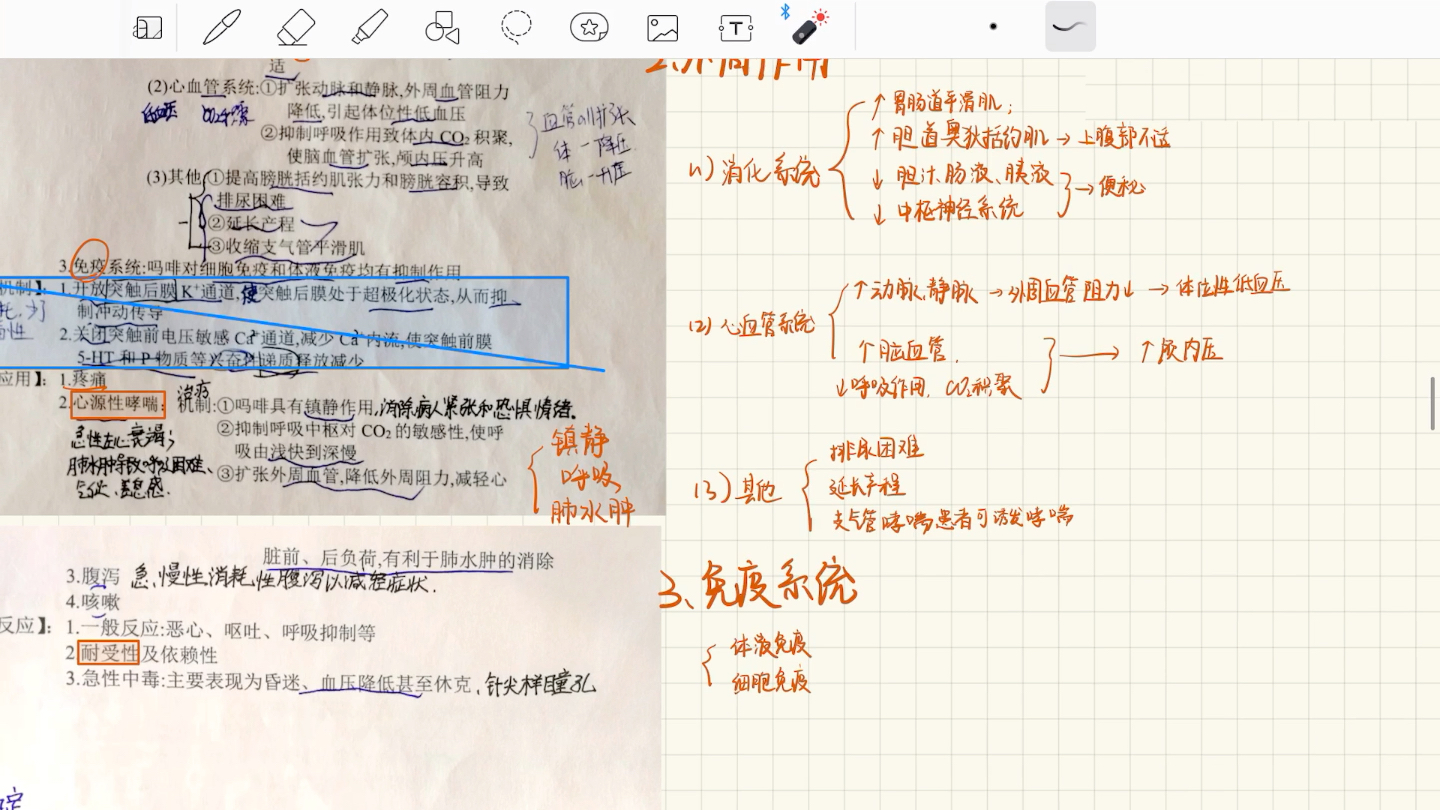 适
(2)心血管系统:①扩张动脉和静脉,外周血管阻力
降低,引起体位性低血压
②抑制呼吸作用致体内 CO₂ 积聚,
使脑血管扩张,颅内压升高
血管all扩张
体一降压
脑一升压
(3)其他 ①提高膀胱括约肌张力和膀胱容积,导致
排尿困难
②延长产程
③收缩支气管平滑肌
3.免疫系统:吗啡对细胞免疫和体液免疫均有抑制作用
机制】: 1.开放突触后膜 K⁺通道,使突触后膜处于超极化状态,从而抑
制冲动传导
2.关闭突触前电压敏感 Ca²⁺通道,减少 Ca²⁺内流,使突触前膜
5-HT 和 P 物质等兴奋性递质释放减少
应用】: 1.疼痛
治疗
2.心源性哮喘: 机制:①吗啡具有镇静作用,消除病人紧张和恐惧情绪.
急性左心衰竭;
肺水肿导致呼吸困难、
②抑制呼吸中枢对 CO₂ 的敏感性,使呼
吸由浅快到深慢
③扩张外周血管,降低外周阻力,减轻心
镇静
呼吸
肺水肿
脏前、后负荷,有利于肺水肿的消除
3.腹泻 急、慢性消耗性腹泻以减轻症状.
4.咳嗽
反应】: 1.一般反应:恶心、呕吐、呼吸抑制等
2 耐受性及依赖性
3.急性中毒:主要表现为昏迷、血压降低甚至休克,针尖样瞳孔
2.外周作用
(1)消化系统
↑胃肠道平滑肌;
↑胆道奥狄括约肌→上腹部不适
↓胆汁、肠液、胰液
↓中枢神经系统
→便秘
(2)心血管系统
↑动脉、静脉→外周血管阻力↓→体位性低血压
个脑血管,
↓呼吸作用, CO₂积聚
→↑颅内压
(3)其他
排尿困难
延长产程
支气管哮喘患者可诱发哮喘
3、免疫系统
体液免疫
细胞免疫